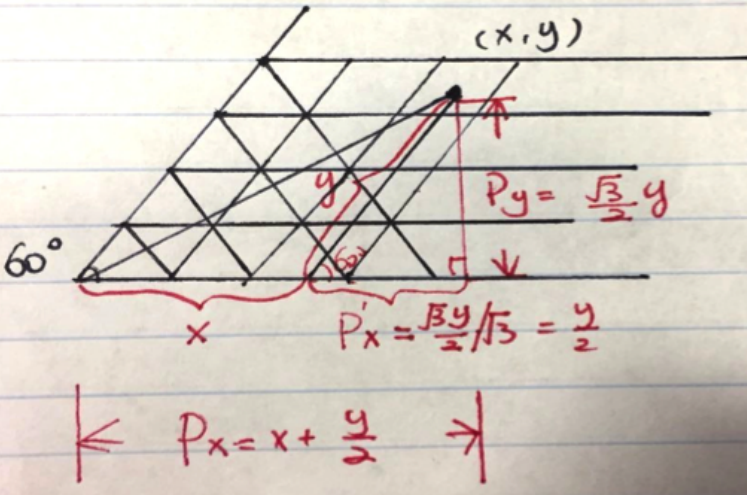 (x,y)
y
Py = √3/2 y
60°
60°
x
P'x = √3y/2/√3 = y/2
Px = x + y/2